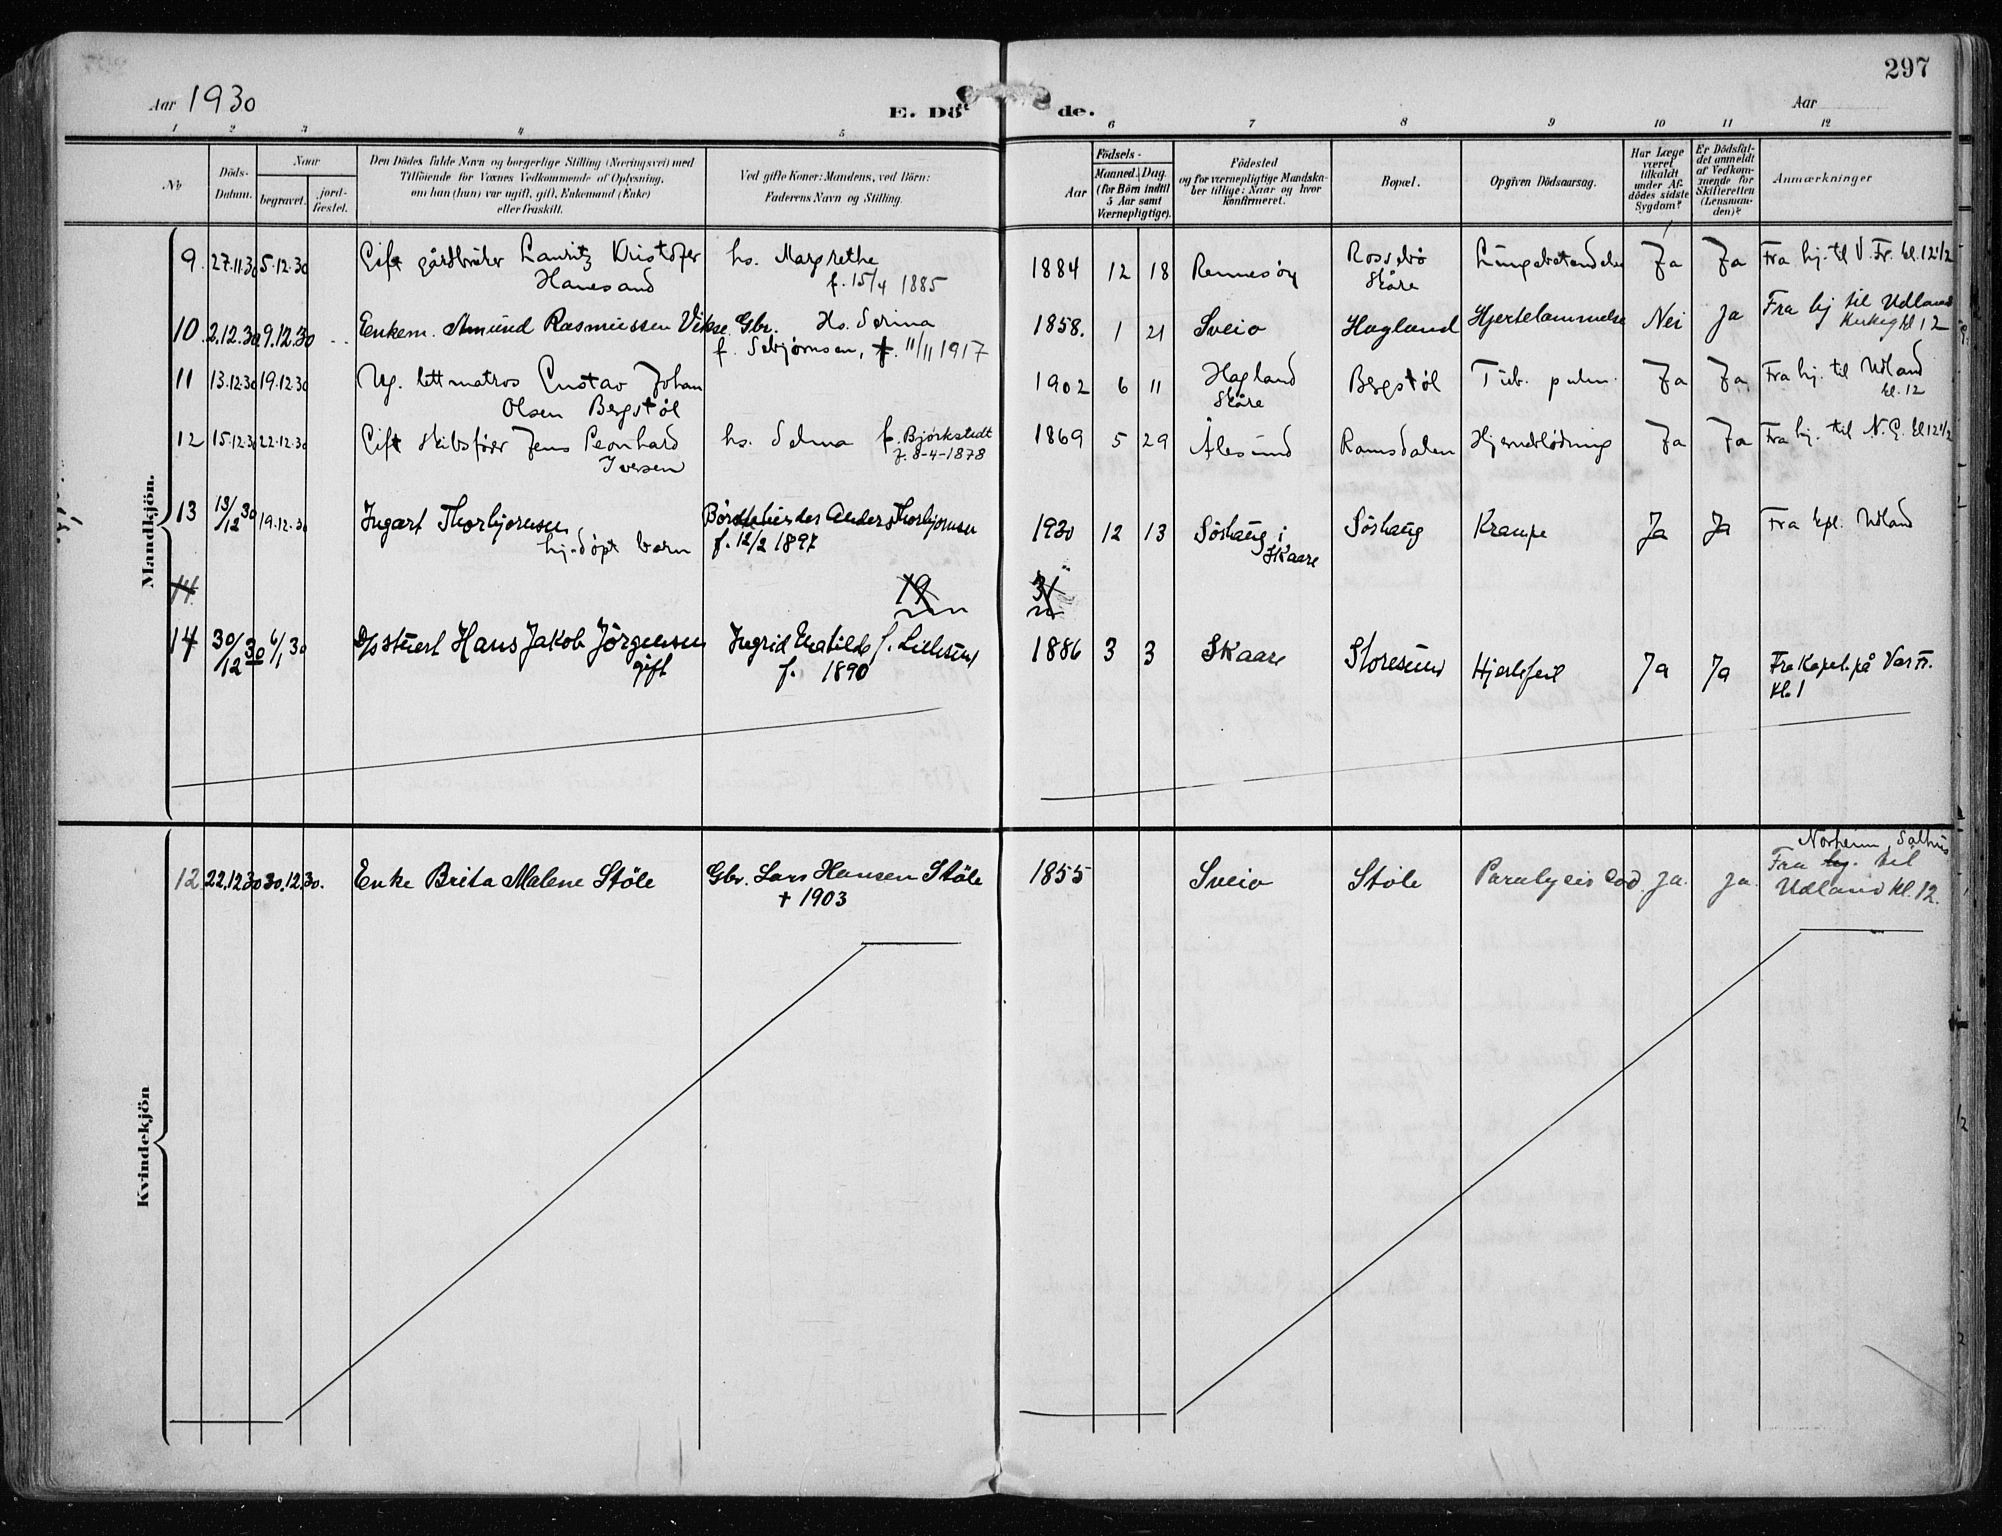 297
Aar 1930
E. Dö de.
Aar
1 2 3 4 5 6 7 8 9 10 11 12
No
Döds-
Datum.
Naar
begravet.
jord-
fæstet.
Den Dödes fulde Navn og borgerlige Stilling (Næringsvei) med
Tilföiende for Voxnes Vedkommende af Oplysning,
om han (hun) var ugift, gift, Enkemand (Enke)
eller fraskilt.
Ved gifte Koner: Mandens, ved Börn:
Faderens Navn og Stilling.
Födsels-
Aar
Maaned. Dag.
(for Börn indtil
5 Aar samt
Værnepligtige).
Födested
og for værnepligtige Mandska-
ber tillige: Naar og hvor
Konfirmeret.
Bopæl.
Opgiven Dödsaarsag.
Har Læge
været
tilkaldt
under Af-
dödes sidste
Sygdom?
Er Dödsfal-
det anmeldt
af Vedkom-
mende for
Skifteretten
(Lensman-
den)?
Anmærkninger
Mandkjön.
9. 27.11.30 5.12.30 Gift gårdbruker Lauritz Kristofer hs. Margrethe 1884 12 18 Rennesøy Rossebø Lungebetendelse Ja Ja Fra hj. til V. Fr. kl. 12½
Hanesand f. 15/4 1885 Skåre
10 2.12.30 9.12.30 Enkem. Amund Rasmussen Vikse. Gbr. Hs. Serina 1858. 1 21 Sveio Hagland Hjertelammelse Nei Ja Fra hj til Udland
f. Sebjørnsen, †. 11/11 1917 kl 12
11 13.12.30 19.12.30 Ug. lettmatros Gustav Johan 1902 6 11 Hagland Bergstøl Tub. pulm. Ja Ja Fra hj. til Udland
Olsen Bergstøl Skåre kl. 12
12 15.12.30 22.12.30 Gift skibsfører Jens Leonhard hs. Selma f. Bjørkstedt 1869 5 29 Ålesund Ramsdalen Hjerneblødning Ja Ja Fra hj. til N. G. kl 12½
Iversen f. 8-4-1878
13 13/12 30 19.12.30 Ingart Thorbjornsen Anders Thorbjornsen 1930 12 13 Sörhaug i Sörhaug Krampe Ja Ja Fra kpl. Udland
hj.döpt barn f. 12/2 1897 Skaare
14 19 31
14 30/12 30 6/1 30 D/s stuert Hans Jakob Jörgensen Ingrid Matilde f. Lillesund 1886 3 3 Skaare Storesund Hjertefeil Ja Ja Fra Kapel. på Var Fr.
gift f. 1890 kl. 1
Kvindekjön
Norheim, Salhus
12 22.12.30 30.12.30. Enke Brita Malene Støle Gbr. Lars Hansen Støle 1855 Sveio Støle Paralysis cod. ja. ja. Fra hj. til
† 1903 Udland kl. 12.